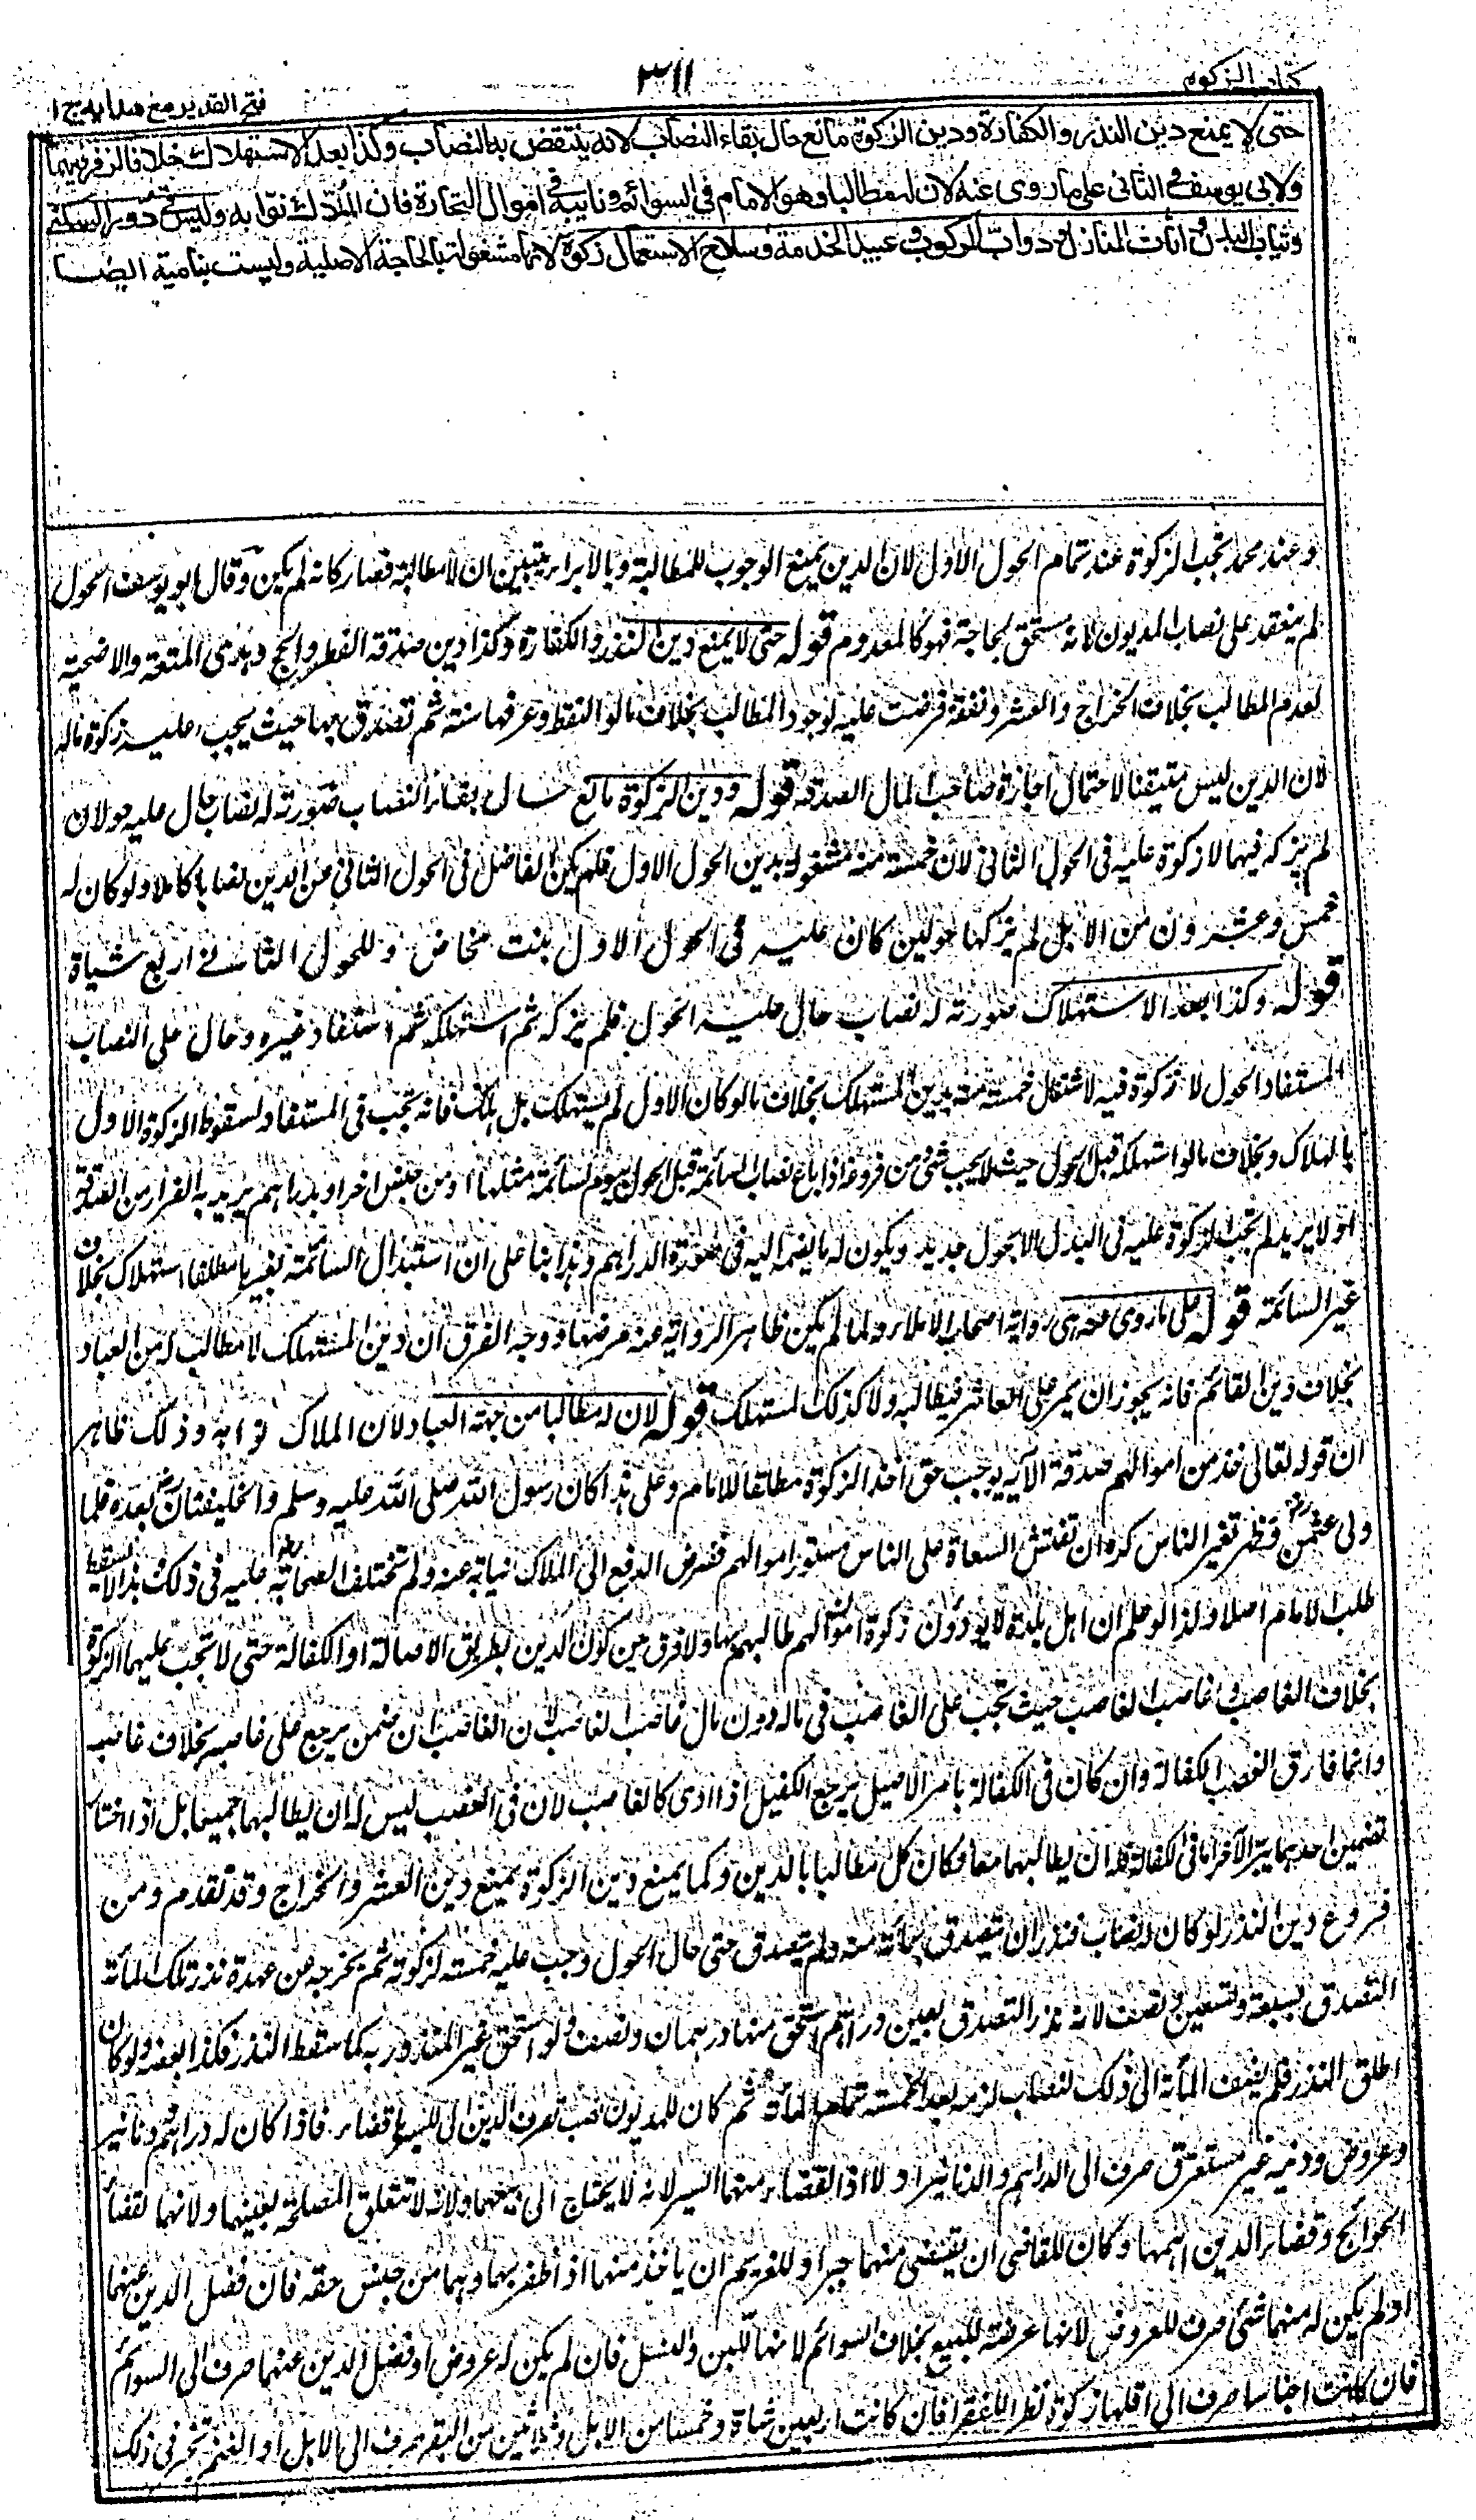 كتاب الزكوة
٣١١
فتح القدير مع هدايه ج ١
حتى لا يمنع دين النذر والكفارة ودين الزكوة مانع حال بقاء النصاب لانه ينتقض به النصاب وكذا بعد الاستهلاك خلافا لزفر فيهما
ولابي يوسف في الثاني على ما روى عنه لان له مطالبا وهو الامام في السوائم ونايبه في اموال التجارة فان الملاك نوابه وليس في دور السكنى
وثياب البدن واثاث المنازل ودواب الركوب وعبيد الخدمة وسلاح الاستعمال زكوة لانها مشغولة بالحاجة الاصلية وليست بنامية ايضا
وعند محمد تجب الزكوة عند تمام الحول الاول لان الدين يمنع الوجوب للمطالبة وبالابراء يتبين ان لا مطالبة فصار كانه لم يكن وقال ابو يوسف الحول
لم ينعقد على نصاب المديون لانه مستحق لحاجة فهو كالمعدوم قوله حتى لا يمنع دين النذر والكفارة وكذا دين صدقة الفطر والحج وهدى المتعة والاضحية
لعدم المطالب بخلاف الخراج والعشر ونفقة فرضت عليه لوجود المطالب بخلاف ما لو التقط وعرفها سنة ثم تصدق بها حيث يجب عليه زكوة ماله
لان الدين ليس متيقنا لاحتمال اجازة صاحب المال الصدقة قوله ودين الزكوة مانع حال بقاء النصاب صورته له نصاب حال عليه حولان
لم يزكه فيهما لا زكوة عليه في الحول الثاني لان خمسة منه مشغولة بدين الحول الاول فلم يكن الفاضل في الحول الثاني عن الدين نصابا كاملا ولو كان له
خمس وعشرون من الابل لم يزكها حولين كان عليه في الحول الاول بنت مخاض وللحول الثاني اربع شياة
قوله وكذا بعد الاستهلاك صورته له نصاب حال عليه الحول فلم يزكه ثم استهلكه ثم استفاد غيره وحال على النصاب
المستفاد الحول لا زكوة فيه لاشتغال خمسة منه بدين المستهلك بخلاف ما لو كان الاول لم يستهلك بل هلك فانه تجب في المستفاد لسقوط الزكوة الاول
بالهلاك وبخلاف ما لو استهلكه قبل الحول حيث لا يجب شئ ومن فروعه اذا باع نصاب السائمة قبل الحول بيوم بسائمة مثلها او من جنس اخر او بدراهم يريد به الفرار من الصدقة
او لا يريد لم تجب الزكوة عليه في البدل الا بحول جديد ويكون له ما يضمه اليه في صورة الدراهم وهذا بناء على ان استبدال السائمة بغيرها مطلقا استهلاك بخلاف
غير السائمة قوله على ما روى عنه هي رواية اصحاب الاملاء ولما لم يكن ظاهر الرواية عنه مرضها ووجه الفرق ان دين المستهلك لا مطالب له من العباد
بخلاف دين القائم فانه يجوز ان يمر على العاشر فيطالبه ولا كذلك المستهلك قوله لان له مطالبا من جهة العباد لان الملاك نوابه وذلك ظاهر
ان قوله تعالى خذ من اموالهم صدقة الآية يوجب حق اخذ الزكوة مطلقا للامام وعلى هذا كان رسول الله صلى الله عليه وسلم والخليفتان بعده فلما
ولى عثمن وظهر تغير الناس كره ان تفتش السعاة على الناس مستور اموالهم ففوض الدفع الى الملاك نيابة عنه ولم تختلف الصحابة عليه في ذلك وهذا لا يسقط
طلب الامام اصلا ولذا لو علم ان اهل بلدة لا يودون زكوة اموالهم طالبهم بها ولا فرق بين كون الدين بطريق الاصالة او الكفالة حتى لا تجب عليهما الزكوة
بخلاف الغاصب وغاصب الغاصب حيث تجب على الغاصب في ماله دون مال غاصب الغاصب لان الغاصب ان ضمن يرجع على غاصبه بخلاف غاصبه
وانما فارق الغصب الكفالة وان كان في الكفالة بامر الاصيل يرجع الكفيل اذا ادى كالغاصب لان في الغصب ليس له ان يطالبهما جميعا بل اذا اختار
تضمين احدهما يبرأ الآخر اما في الكفالة فله ان يطالبهما معا فكان كل مطالبا بالدين وكما يمنع دين الزكوة يمنع دين العشر والخراج وقد تقدم ومن
فروع دين النذر لو كان له نصاب فنذر ان يتصدق بمائة منه ولم يتصدق حتى حال الحول وجب عليه خمسة لزكوته ثم يخرجه عن عهدة نذر تلك المائة
التصدق بسبعة وتسعين ونصف لانه نذر التصدق بعين دراهم استحق منها درهمان ونصف ولو استحق عين المنذور به كله سقط النذر فكذا بعضه ولو كان
اطلق النذر فلم يضف المائة الى ذلك النصاب لزمه بعد الخمسة تمام المائة ثم كان للمديون نصب تصرف الدين الى ايسرها قضاء فاذا كان له دراهم ودنانير
وعروض ودينه غير مستغرق صرف الى الدراهم والدنانير اولا اذ القضاء منهما ايسر لانه لا يحتاج الى بيعهما ولانه لا تتعلق المصلحة بعينهما ولانهما لقضاء
الحوائج وقضاء الدين اهمها وكان للقاضي ان يقضي منهما جبرا وللغريم ان ياخذ منهما اذا ظفر بهما وهما من جنس حقه فان فضل الدين عنهما
او لم يكن له منهما شئ صرف للعروض لانها عرضة للبيع بخلاف السوائم لانها للبن والنسل فان لم يكن له عروض او فضل الدين عنهما صرف الى السوائم
فان كانت اجناسا صرف الى اقلها زكوة نظرا للفقراء فان كانت اربعين شاة وخمسا من الابل وثلاثين من البقر صرف الى الابل او الغنم تخير في ذلك